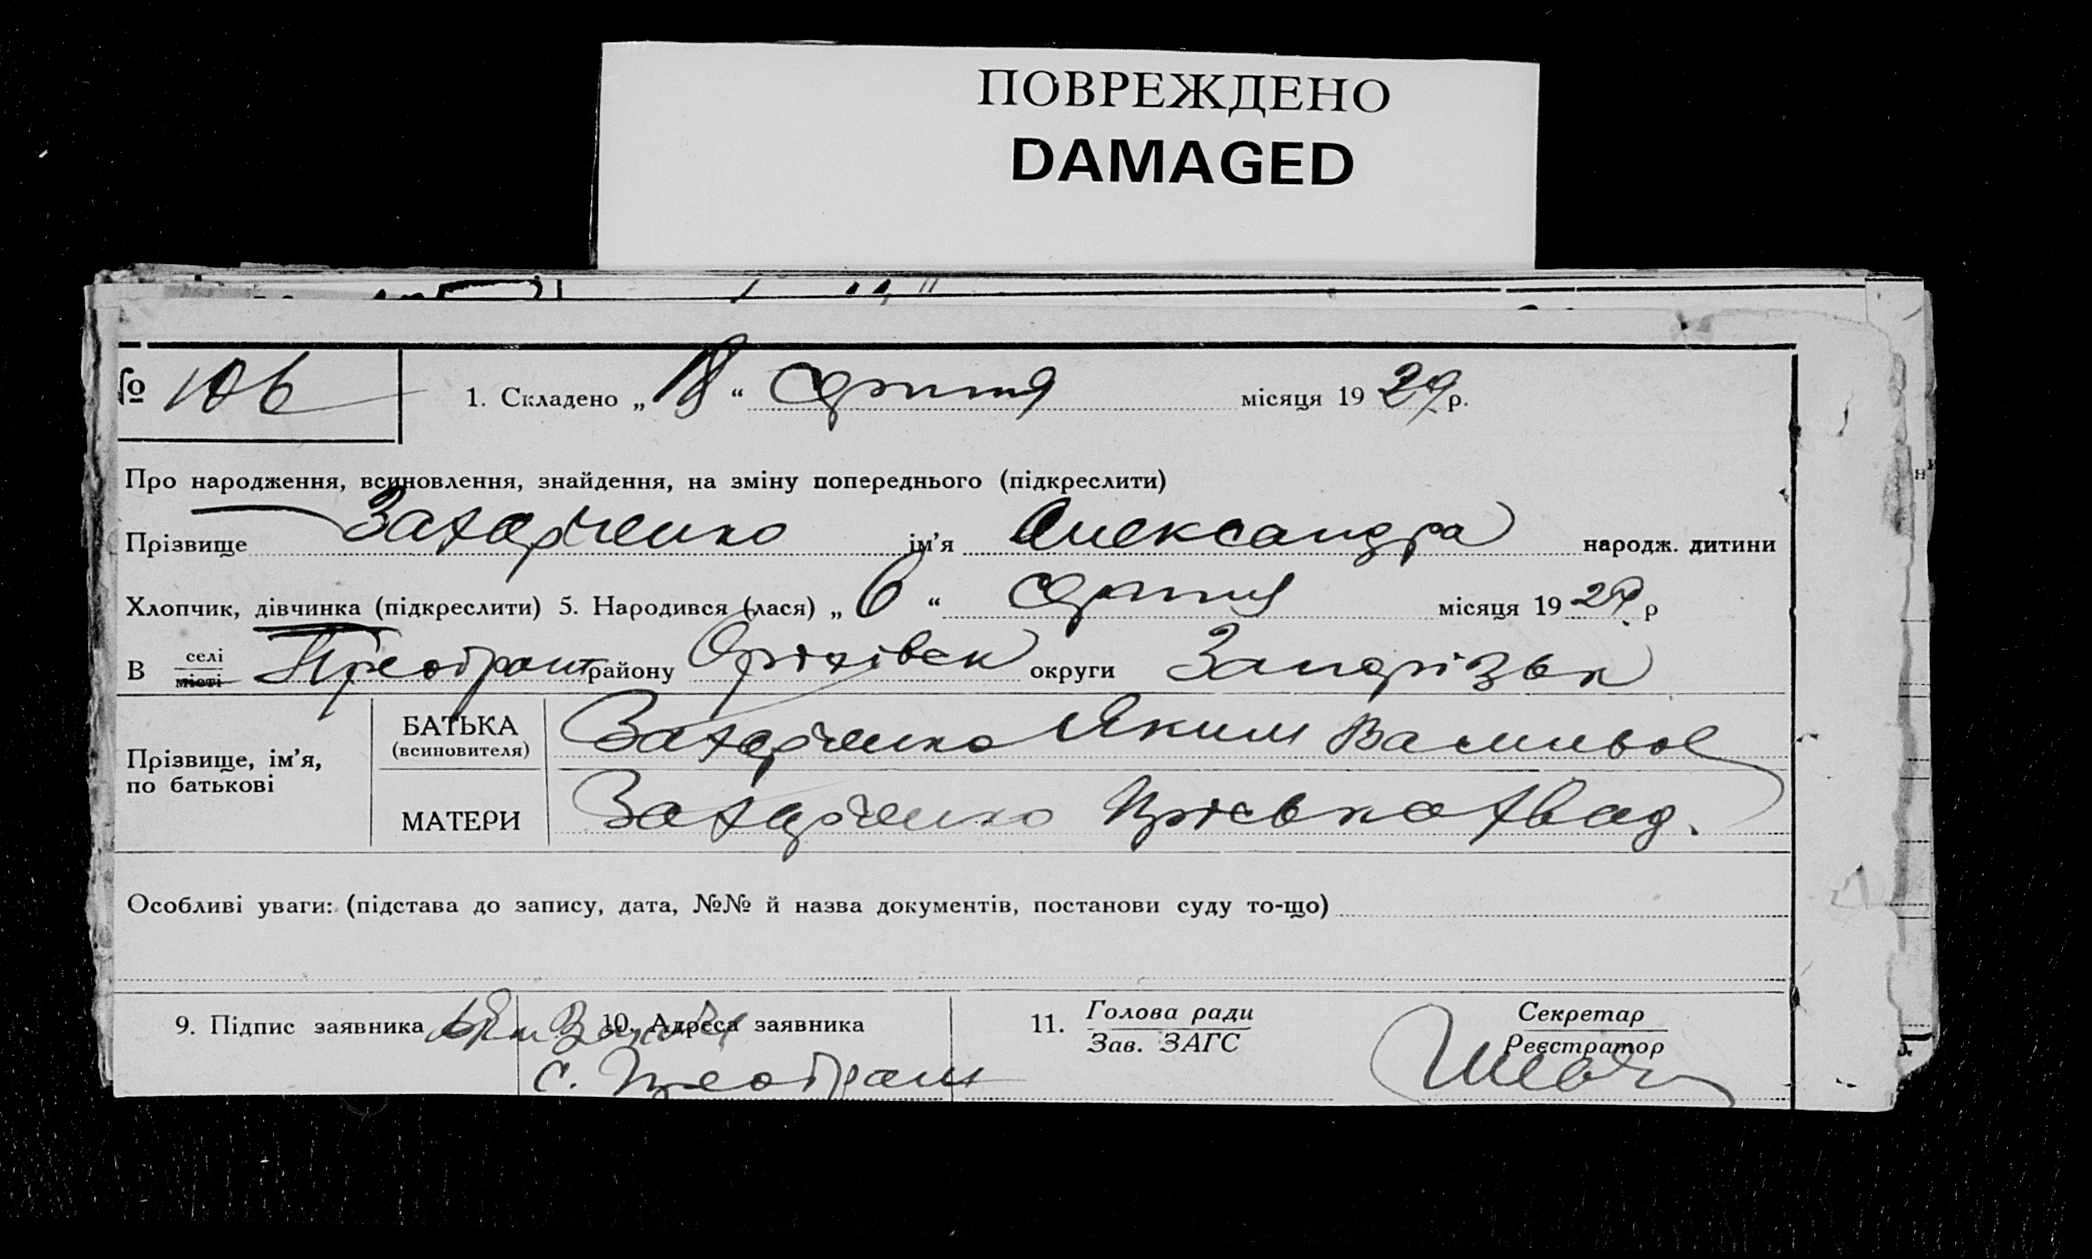 ПОВРЕЖДЕНО
DAMAGED
№ 106 1. Складено „ 18 “ серпня місяця 19 29 р.
Про народження, всиновлення, знайдення, на зміну попереднього (підкреслити)
Прізвище Захарченко ім'я Олександра народж. дитини
Хлопчик, дівчинка (підкреслити) 5. Народився (лася) „ 6 “ серпня місяця 19 29 р
В селі місті Преображен району Оріхівськ округи Запорізьк
Прізвище, ім'я, по батькові
БАТЬКА (всиновителя) Захарченко Яким Васильов
МАТЕРИ Захарченко
Особливі уваги: (підстава до запису, дата, №№ й назва документів, постанови суду то-що)
9. Підпис заявника 10. Адреса заявника 11. Голова ради Зав. ЗАГС Секретар Реєстратор
с. Преображен